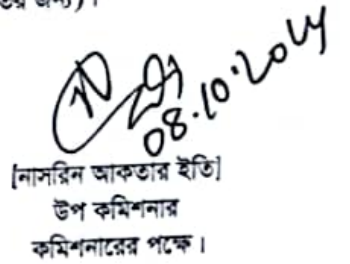 জন্য)।
08.10.2024
[নাসরিন আকতার ইতি]
উপ কমিশনার
কমিশনারের পক্ষে।